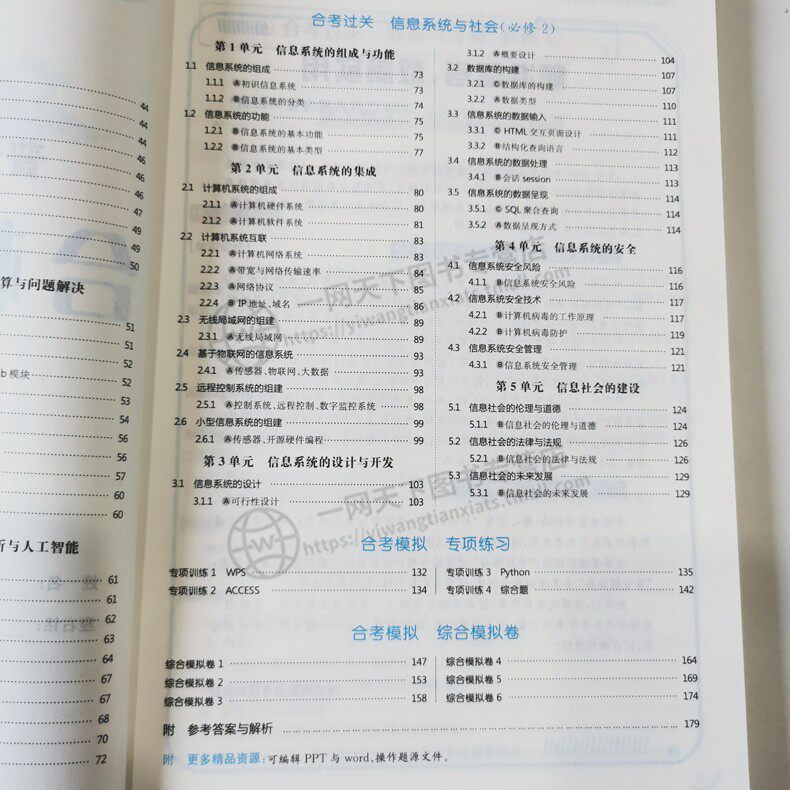 44
44
45
46
46
47
49
49
50
算与问题解决
51
51
52
b模块 52
53
54
56
56
57
60
60
析与人工智能
61
61
62
64
67
67
68
70
72
合考过关 信息系统与社会(必修2)
第1单元 信息系统的组成与功能
1.1 信息系统的组成 73
1.1.1 A初识信息系统 73
1.1.2 B信息系统的分类 74
1.2 信息系统的功能 75
1.2.1 B信息系统的基本功能 75
1.2.2 B信息系统的基本类型 77
第2单元 信息系统的集成
2.1 计算机系统的组成 80
2.1.1 A计算机硬件系统 80
2.1.2 A计算机软件系统 81
2.2 计算机系统互联 83
2.2.1 A计算机网络系统 83
2.2.2 A带宽与网络传输速率 84
2.2.3 A网络协议 86
2.2.4 B IP地址、域名 86
2.3 无线局域网的组建 89
2.3.1 A无线局域网 89
2.4 基于物联网的信息系统 93
2.4.1 A传感器、物联网、大数据 93
2.5 远程控制系统的组建 98
2.5.1 A控制系统、远程控制、数字监控系统 98
2.6 小型信息系统的组建 99
2.6.1 A传感器、开源硬件编程 99
第3单元 信息系统的设计与开发
3.1 信息系统的设计 103
3.1.1 A可行性设计 103
3.1.2 A概要设计 104
3.2 数据库的构建 107
3.2.1 C数据库的构建 107
3.2.2 A数据类型 110
3.3 信息系统的数据输入 111
3.3.1 C HTML交互页面设计 111
3.3.2 B结构化查询语言 112
3.4 信息系统的数据处理 113
3.4.1 B会话 session 113
3.5 信息系统的数据呈现 114
3.5.1 C SQL聚合查询 114
3.5.2 A数据呈现方式 114
第4单元 信息系统的安全
4.1 信息系统安全风险 116
4.1.1 B信息系统安全风险 116
4.2 信息系统安全技术 117
4.2.1 B计算机病毒的工作原理 117
4.2.2 B计算机病毒防护 119
4.3 信息系统安全管理 121
4.3.1 B信息系统安全管理 121
第5单元 信息社会的建设
5.1 信息社会的伦理与道德 124
5.1.1 B信息社会的伦理与道德 124
5.2 信息社会的法律与法规 126
5.2.1 B信息社会的法律与法规 126
5.3 信息社会的未来发展 129
5.3.1 B信息社会的未来发展 129
合考模拟 专项练习
专项训练1 WPS 132
专项训练2 ACCESS 134
专项训练3 Python 135
专项训练4 综合题 142
合考模拟 综合模拟卷
综合模拟卷1 147
综合模拟卷2 153
综合模拟卷3 158
综合模拟卷4 164
综合模拟卷5 169
综合模拟卷6 174
附 参考答案与解析 179
附 更多精品资源:可编辑PPT与word、操作题源文件。
一网天下图书专营店
https://yiwangtianxiats.tmall.com
一网天下图书专营店
https://yiwangtianxiats.tmall.com